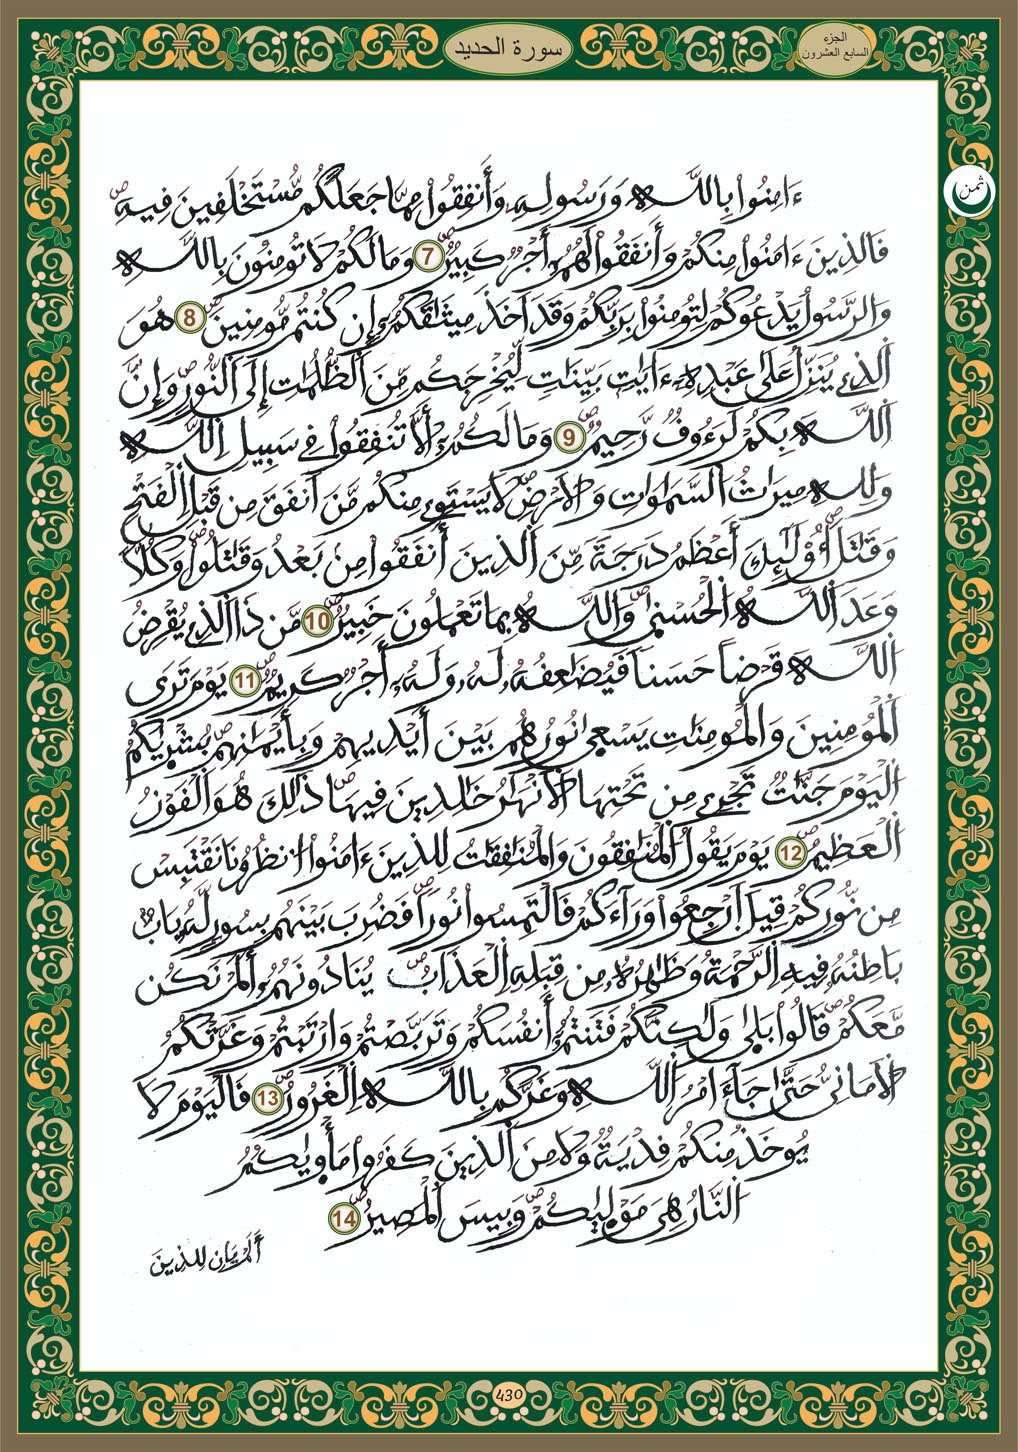 الجزء
السابع العشرون
سورة الحديد
ثمن
ءَامِنُواْ بِاللَّهِ وَرَسُولِهِۦ وَأَنفِقُواْ مِمَّا جَعَلَكُم مُّسْتَخْلَفِينَ فِيهِۖ
فَالذِينَ ءَامَنُواْ مِنكُمْ وَأَنفَقُواْ لَهُمُۥٓ أَجْرٞ كَبِيرٞۖ 7 وَمَا لَكُمْ لَا تُومِنُونَ بِاللَّهِ
وَالرَّسُولُ يَدْعُوكُمْ لِتُومِنُواْ بِرَبِّكُمْ وَقَدَ اَخَذَ مِيثَٰقَكُمُۥٓ إِن كُنتُم مُّومِنِينَۖ 8 هُوَ
اَلذِے يُنَزِّلُ عَلَىٰ عَبْدِهِۦٓ ءَايَٰتِۢ بَيِّنَٰتٖ لِّيُخْرِجَكُم مِّنَ اَلظُّلُمَٰتِ إِلَى اَلنُّورِۖ وَإِنَّ
اَللَّهَ بِكُمْ لَرَءُوفٞ رَّحِيمٞۖ 9 وَمَا لَكُمُۥٓ أَلَّا تُنفِقُواْ فِے سَبِيلِ اِللَّهِ
وَلِلهِ مِيرَٰثُ اُلسَّمَٰوَٰتِ وَالَارْضِۖ لَا يَسْتَوِے مِنكُم مَّنَ اَنفَقَ مِن قَبْلِ اِلْفَتْحِ
وَقَٰتَلَۖ أُوْلَٰٓئِكَ أَعْظَمُ دَرَجَةٗ مِّنَ اَلذِينَ أَنفَقُواْ مِنۢ بَعْدُ وَقَٰتَلُواْۖ وَكُلّاٗ
وَعَدَ اَللَّهُ اُلْحُسْنَىٰۖ وَاللَّهُ بِمَا تَعْمَلُونَ خَبِيرٞۖ 10 مَّن ذَا اَلذِے يُقْرِضُ
اُللَّهَ قَرْضاً حَسَناٗ فَيُضَٰعِفُهُۥ لَهُۥ وَلَهُۥٓ أَجْرٞ كَرِيمٞۖ 11 يَوْمَ تَرَى
اَلْمُومِنِينَ وَالْمُومِنَٰتِ يَسْعَىٰ نُورُهُم بَيْنَ أَيْدِيهِمْ وَبِأَيْمَٰنِهِمۖ بُشْرَىٰكُمُ
اُلْيَوْمَ جَنَّٰتٞ تَجْرِے مِن تَحْتِهَا اَلَانْهَٰرُ خَٰلِدِينَ فِيهَاۖ ذَٰلِكَ هُوَ اَلْفَوْزُ
اُلْعَظِيمُۖ 12 يَوْمَ يَقُولُ اُلْمُنَٰفِقُونَ وَالْمُنَٰفِقَٰتُ لِلذِينَ ءَامَنُواْ اُنظُرُونَا نَقْتَبِسْ
مِن نُّورِكُمْ قِيلَ اَرْجِعُواْ وَرَآءَكُمْ فَالْتَمِسُواْ نُوراٗۖ فَضُرِبَ بَيْنَهُم بِسُورٖ لَّهُۥ بَابُۢ
بَاطِنُهُۥ فِيهِ اِلرَّحْمَةُ وَظَٰهِرُهُۥ مِن قِبَلِهِ اِلْعَذَابُۖ يُنَادُونَهُمُۥٓ أَلَمْ نَكُن
مَّعَكُمْۖ قَالُواْ بَلَىٰ وَلَٰكِنَّكُمْ فَتَنتُمُۥٓ أَنفُسَكُمْ وَتَرَبَّصْتُمْ وَارْتَبْتُمْ وَغَرَّتْكُمُ
اُلَامَانِيُّ حَتَّىٰ جَآءَ امْرُ اُللَّهِ وَغَرَّكُم بِاللَّهِ اِلْغَرُورُۖ 13 فَالْيَوْمَ لَا
يُوخَذُ مِنكُمْ فِدْيَةٞ وَلَا مِنَ اَلذِينَ كَفَرُواْۖ مَأْوَىٰكُمُ
اُلنَّارُ هِيَ مَوْلَىٰكُمْۖ وَبِيسَ اَلْمَصِيرُۖ 14
أَلَمْ يَانِ لِلذِينَ
430